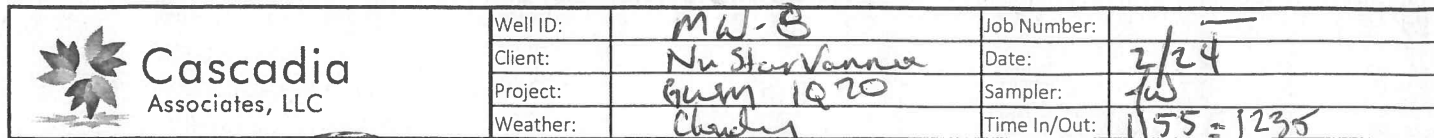 Cascadia
Associates, LLC
Well ID: MW-B Job Number: —
Client: NuStar Vannex Date: 2/24
Project: GWM 1Q20 Sampler:
Weather: Cloudy Time In/Out: 1155 - 1235